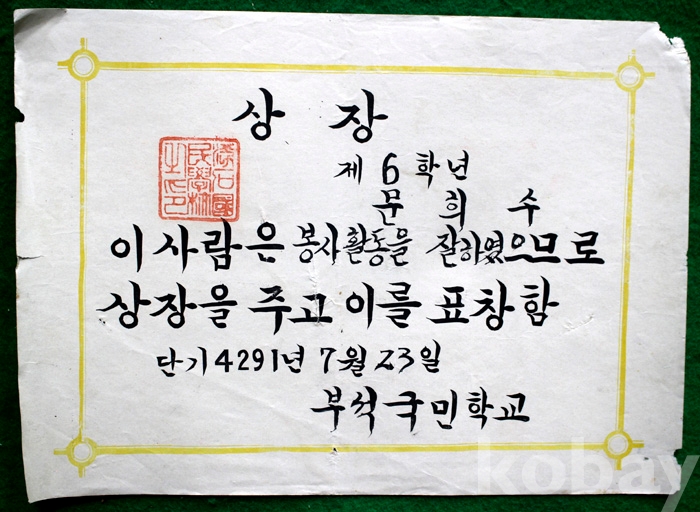 상장
제 6 학년
문희수
이 사람은 봉사활동을 잘하였으므로
상장을 주고 이를 표창함
단기 4291년 7월 23일
부석국민학교
浮石國民學校之印
kobay